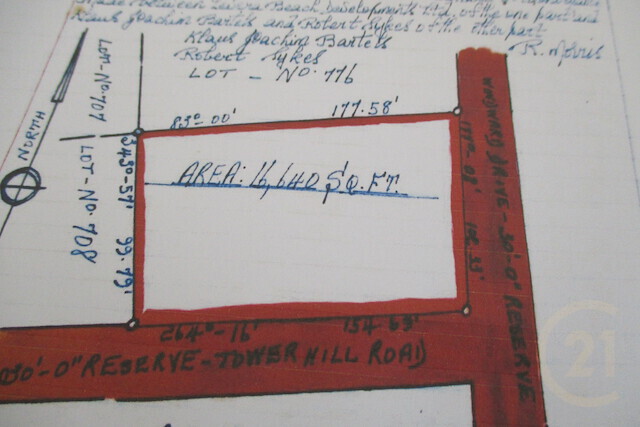 Made between Beach Developments Ltd. of the one part and
Klaus Joachim Bartels and Robert Sykes of the other part
Klaus Joachim Bartels
Robert Sykes
R. Morris
LOT - NO. 776
LOT-NO. 707
83°-00' 177.58'
NORTH
LOT-NO. 708
343°-57' 99.79'
AREA: 16,640 SQ.FT.
WINDWARD DRIVE-30'-0" RESERVE
264°-16' 154.63'
30'-0" RESERVE-TOWER HILL ROAD
21